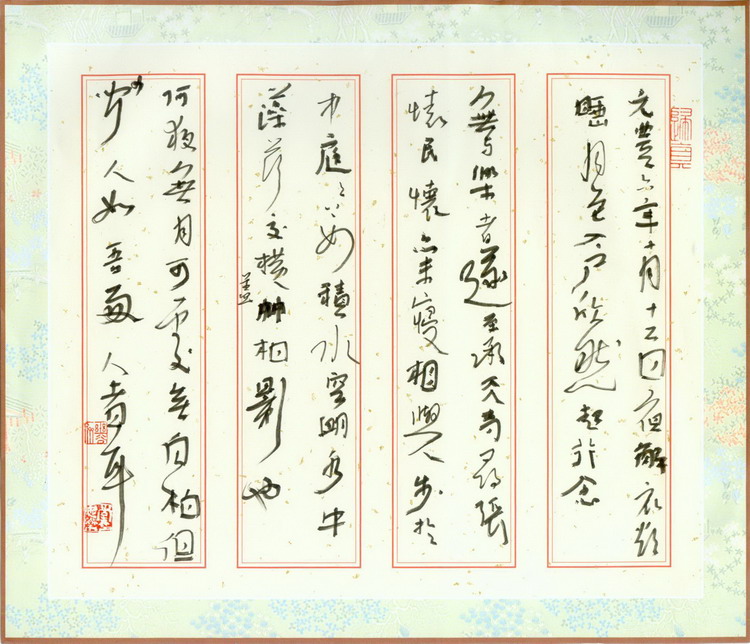 元豐六年十月十二日夜解衣欲
睡月色入戶欣然起行念
無与樂者遂至承天寺尋張
懷民懷亦未寢相與步於
中庭々下如積水空明水中
藻荇交橫蓋竹柏影也
何夜無月何處無竹柏但
少人如吾兩人者耳